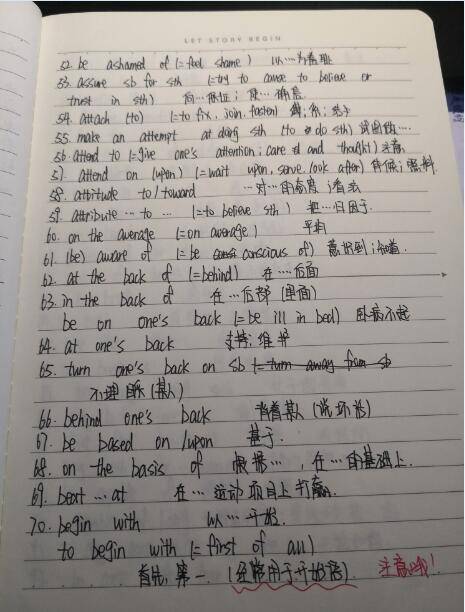 LET STORY BEGIN
52. be ashamed of (=feel shame) 以…为羞耻
53. assure sb for sth (=try to cause to believe or
trust in sth) 向…保证；使…确信.
54. attach (to) (=to fix, join, fasten) 缚；系；结于
55. make an attempt at doing sth (to do sth) 试图做…
56. attend to (=give one's attention; care and thought) 注意
57. attend on (upon) (=wait upon, serve, look after) 侍候；照料
58. attitude to/toward …对…的态度；看法
59. attribute … to … (=to believe sth) 把…归因于.
60. on the average (=on average) 平均
61. (be) aware of (=be conscious of) 意识到；知道.
62. at the back of (=behind) 在…后面
63. in the back of 在…后部(里面)
be on one's back (=be ill in bed) 卧病不起
64. at one's back 支持；维护
65. turn one's back on sb (=turn away from sb
不理睬(某人)
66. behind one's back 背着某人(说坏话)
67. be based on /upon 基于.
68. on the basis of 根据…, 在…的基础上.
69. beat … at 在…运动项目上打赢.
70. begin with 以…开始.
to begin with (=first of all)
首先, 第一. (经常用于开始语). 注意哦!